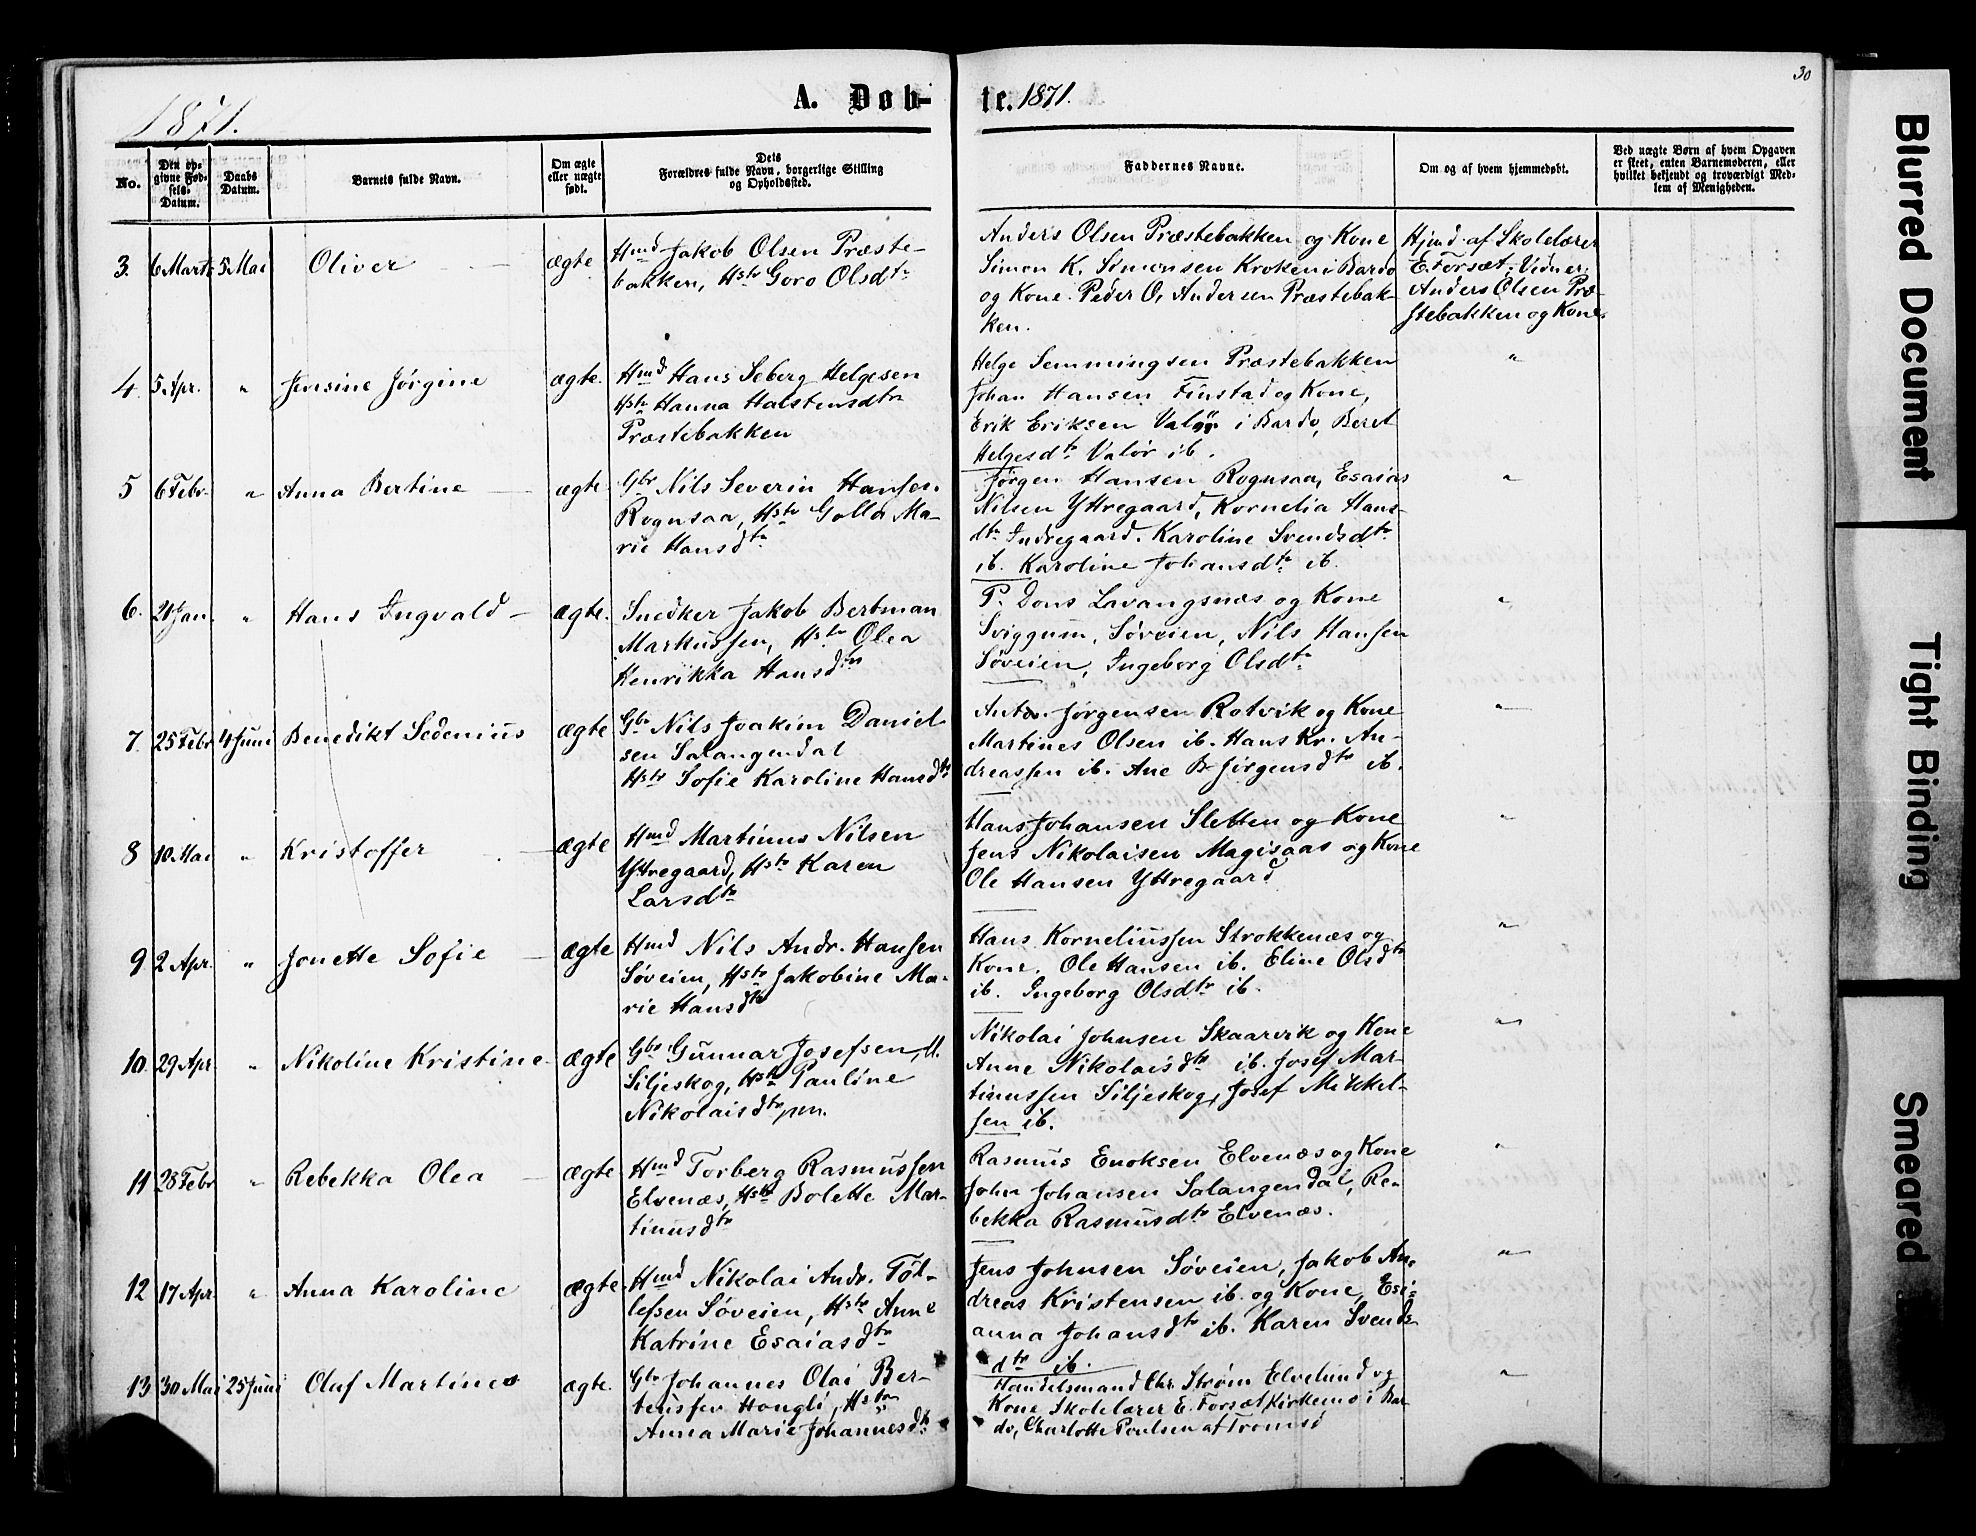 30
1871.
A. Døb-
te. 1871.
No.
Den op-
givne Fød-
sels-
Datum.
Daabs
Datum.
Barnets fulde Navn.
Om ægte
eller uægte
født.
Dets
Forældres fulde Navn, borgerlige Stilling
og Opholdssted.
Faddernes Navne.
Om og af hvem hjemmedøbt.
Ved uægte Børn af hvem Opgaven
er skeet, enten Barnemoderen, eller
hvilket bekjendt og troværdigt Med-
lem af Menigheden.
3. 6 Marts 5 Mai Oliver ægte
Hmd Jakob Olsen Præste-
bakken, Hstr Goro Olsdtr
Anders Olsen Præstebakken og Kone
Simon K. Simonsen Kroken i Bardo
og Kone. Peder O. Andersen Præstebak-
ken.
Hjmd. af Skolelærer
E. Forsæt. Vidner:
Anders Olsen Præ-
stebakken og Kone.
4 5 Apr. " Jensine Jørgine ægte.
Hmd Hans Seberg Helgesen
Hstr Hanna Halstensdtr
Præstebakken
Helge Semmingsen Præstebakken
Johan Hansen Finstad og Kone,
Erik Eriksen Valør i Bardo, Beret
Helgesdtr Valør ib.
"
5 6 Febr. " Anna Bertine ægte
Gbr Nils Severin Hansen
Rognsaa, Hstr Golla Ma-
rie Hansdtr
Jørgen Hansen Rognsaa, Esaias
Nilsen Yttregaard, Kornelia Hans-
dtr Indregaard. Karoline Svendsdtr
ib. Karoline Johansdtr ib.
"
6. Jan. " Hans Ingvald ægte.
Snedker Jakob Bertman
Markussen, Hstr Olea
Henrikka Hansdtr
P. Dons Lavangsnæs og Kone
Sviggum, Søveien, Nils Hansen
Søveien, Ingeborg Olsdtr
"
7. 25 Febr 4 Juni Benedikt Sedenius ægte
Gbr Nils Joakim Daniel-
sen Salangendal
Hstr Sofie Karoline Hansdtr
Jørgensen Rotvik og Kone
Martines Olsen ib. Hans Kr. An-
dreassen ib. Ane B. Jørgensdtr ib.
"
8 10 Mai " Kristoffer ægte
Hmd Martinus Nilsen
Yttregaard, Hstr Karen
Larsdtr
Hans Johansen Sletten og Kone
Jens Nikolaisen Magisaas og Kone
Ole Hansen Yttregaard
"
9 2 Apr. " Jonette Sofie ægte
Hmd Nils Andr. Hansen
Søveien, Hstr Jakobine Ma-
rie Hansdtr
Hans Korneliussen Strokkenæs og
Kone. Ole Hansen ib. Eline Olsdtr
ib. Ingeborg Olsdtr ib.
"
10. 29 Apr. " Nikoline Kristine ægte
Gbr Gunnar Josefsen
Siljeskog, Hstr Pauline
Nikolaisdtr
Nikolai Johnsen Skaarvik og Kone
Anne Nikolaisdtr ib. Josef Mar-
tinussen Siljeskog, Josef Mikkel-
sen ib.
"
11 28 Febr " Rebekka Olea ægte
Hmd Torberg Rasmussen
Elvenæs, Hstr Bolette Mar-
tinusdtr
Rasmus Enoksen Elvenæs og Kone
John Johansen Salangendal, Re-
bekka Rasmusdtr Elvenæs.
"
12 17 Apr. " Anna Karoline ægte
Hmd Nikolai Andr. Tøl-
lefsen Søveien, Hstr Anne
Katrine Esaiasdtr
Jens Johnsen Søveien, Jakob An-
dreas Kristensen ib. og Kone, Esi-
anna Johansdtr ib. Karen Svends-
dtr ib.
"
13 30 Mai 25 Juni Olaf Martines ægte.
Gbr Johannes Olai Ber-
teussen Hongli, Hstr
Anna Marie Johannesdtr
Handelsmand Chr. Strøm Elvelund og
Kone, Skolelærer E. Forsæt Kirkemo i Bar-
do, Charlotte Poulsen af Tromsø
"
Blurred Document
Tight Binding
Smeared